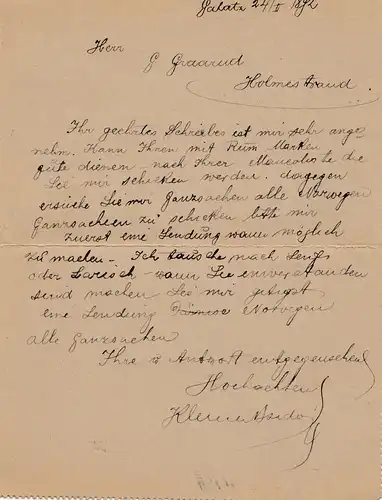 Galatz 24/I 1892
Herr
G Graarud
Holmestrand
Ihr geehrtes Schreiben ist mir sehr ange-
nehm. Kann Ihnen mit Rum Marken
gute dienen nach Ihrer Mancoliste die
Sie mir schicken werden. dagegen
ersuche Sie mir Ganzsachen alle Norwegen
Ganzsachen zu schicken bitte mir
zuerst eine Sendung wann möglich
zu machen - Ich tausche nach Senfs
oder - wann Sie einverstanden
sind machen Sie mir gefügst
eine Sendung Norvegen
alle Ganzsachen
Ihre Antwort entgegensehen
Hochachten